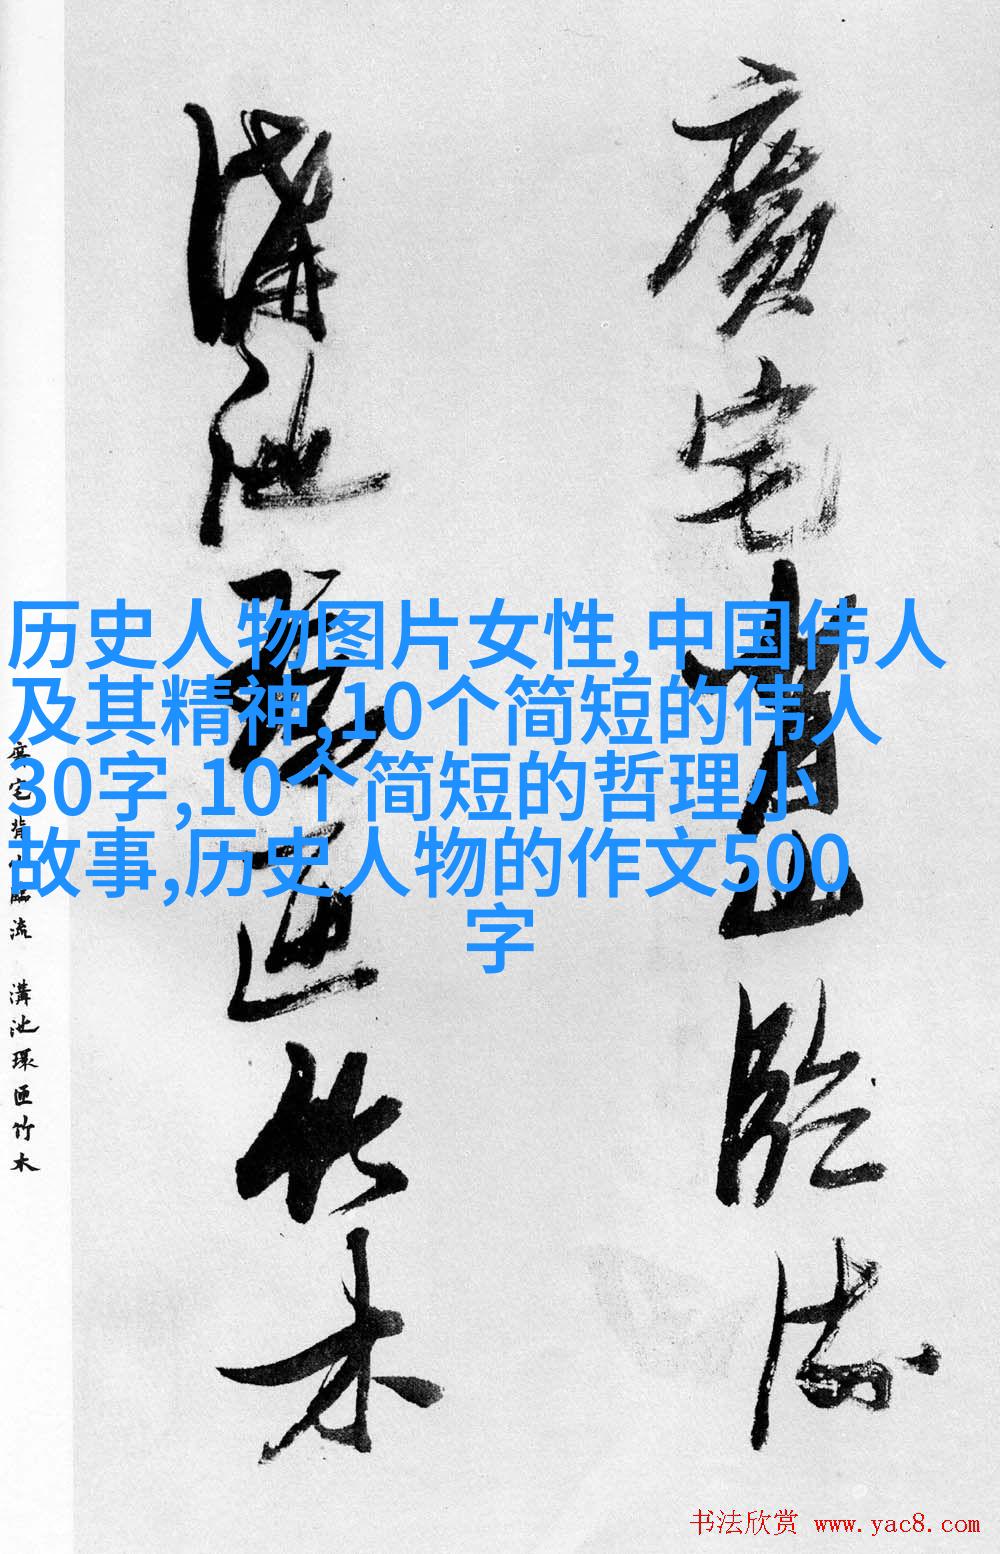 廣宅背山臨流
溝池環匝竹木
历史人物图片女性,中国伟人
及其精神,10个简短的伟人
30字,10个简短的哲理小
故事,历史人物的作文500
字
廣宅背山臨流 溝池環匝竹木
书法欣赏 www.yac8.com